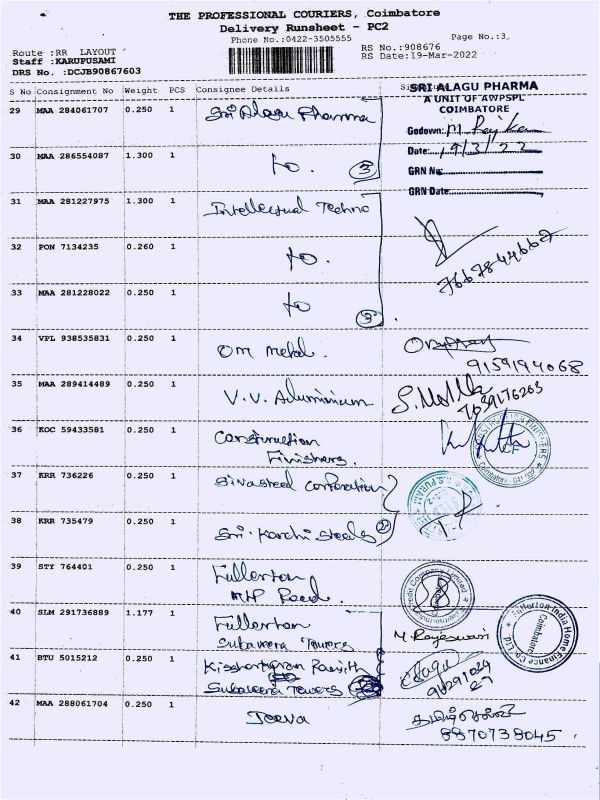 THE PROFESSIONAL COURIERS, Coimbatore
Delivery Runsheet - PC2
Phone No.:0422-3505555
Page No.:3,
Route :RR LAYOUT
Staff :KARUPUSAMI
DRS No. :DCJB90867603
RS No.:908676
RS Date:19-Mar-2022
S No Consignment No Weight PCS Consignee Details
SRI ALAGU PHARMA
A UNIT OF AWPSPL
COIMBATORE
Godown:
Date: 19/3/22
GRN No:
GRN Date
29 MAA 284061707 0.250 1 Sri Alagu Pharma
30 MAA 286554087 1.300 1 to. 3
31 MAA 281227975 1.300 1 Intellectual Techno
32 PON 7134235 0.260 1 to.
7667844667
33 MAA 281228022 0.250 1 to 3
34 VPL 938535831 0.250 1 Om metal.
9159194068
35 MAA 289414489 0.250 1 V.V. Aluminium
36 KOC 59433581 0.250 1 Construction
Finishers.
37 KRR 736226 0.250 1 Sivasteel Corporation
38 KRR 735479 0.250 1 Sri. Karchi Steels 2
39 STY 764401 0.250 1 Fullerton
MTP Road.
40 SLM 291736889 1.177 1 Fullerton
Subaveera Towers
M. Rajeswari
Fullerton India Home Finance Co. Ltd.
Coimbatore
41 BTU 5015212 0.250 1
Subaveera Towers
42 MAA 288061704 0.250 1 Jeeva
தமிழ்செல்வி
8870738045